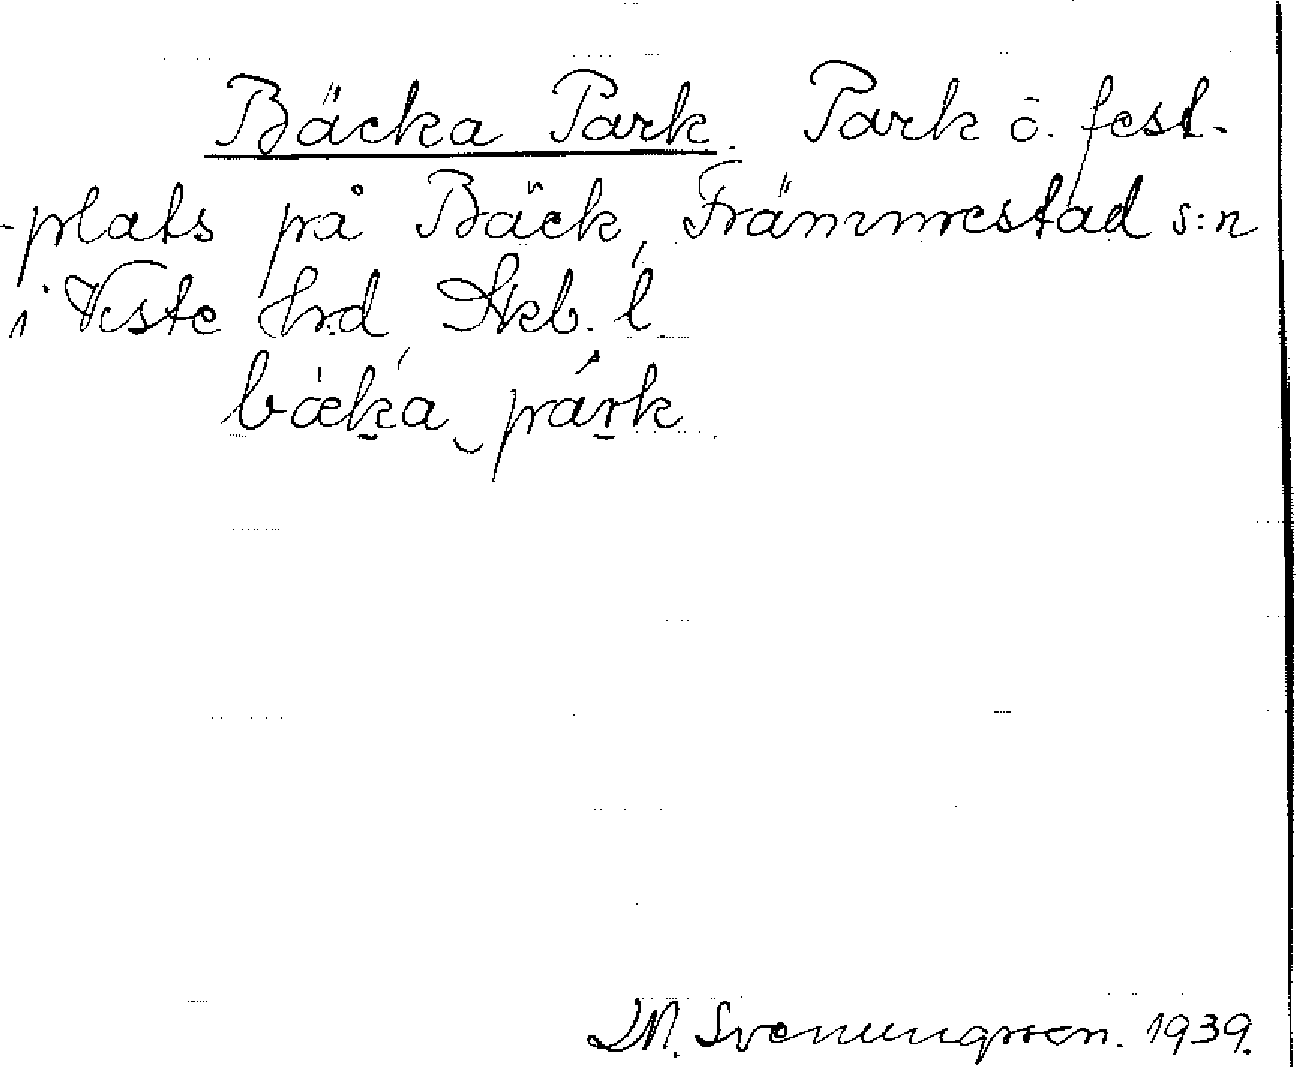 Bäcka Park. Park o. fest-
-plats på Bäck, Främmestad s:n
i Viste hrd, Skb. l.
bæka park
Svenungsson. 1939.